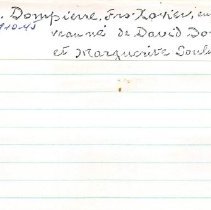 . Dompierre, Frs-Xavier, en
1045
de David Do
et Marguerite Soule